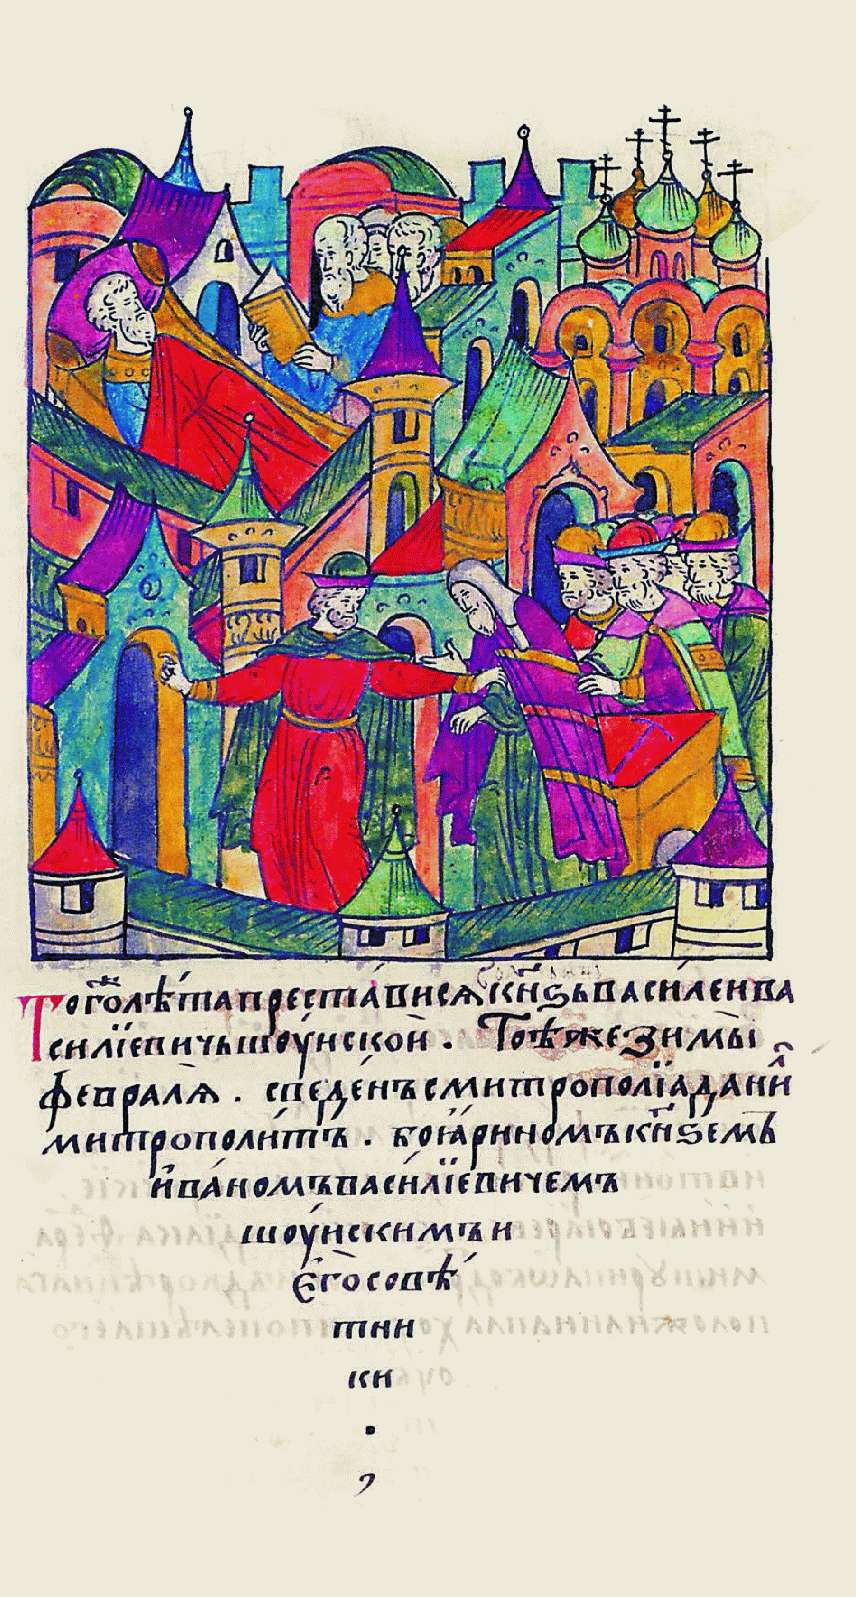 Того҃ лѣта преста́вися кн҃зь васи́леи ва
си́лїевичь шоу́искои . Тоѣ́ же зимы̀
февраля . сведе́нъ с митропо́лїа дании́л
митрополи́тъ . боя́риномъ кн҃земъ
ива́номъ васи́лїевичемъ
шоу́искимъ и
его̀ совѣ́
тни
ки
.